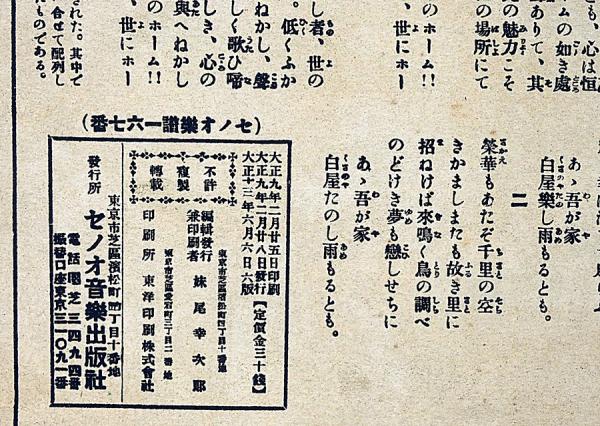 も、心は恒
ムの如き處
ありて、其
の魅力こそ
の場所にて
し者、世の
。低くふか
ねかし、聲
しく歌ひ啼
しき、心の
奥へねかし
のホーム!!
、世にホー
された。其中で
合せて配列し
たものである。
あゝ吾が家
白屋樂し雨もるとも。
二
榮華もあたぞ千里の空
きかまましたまた故き里に
招ねけば來鳴く鳥の調べ
のどけき夢も戀しせちに
あゝ吾が家
白屋たのし雨もるとも。
(セノオ樂譜一六七番)
大正九年二月廿五日印刷
大正九年二月廿八日發行
大正十三年六月六日六版
【定價金三十錢】
不許
複製
轉載
東京市芝區濱松町四丁目十番地
編輯發行
兼印刷者 妹尾幸次郎
東京市芝區愛宕町三丁目二番地
印刷所 東洋印刷株式會社
東京市芝區濱松町四丁目十番地
發行所 セノオ音樂出版社
電話芝三四九四番
振替口座東京三一〇九一番